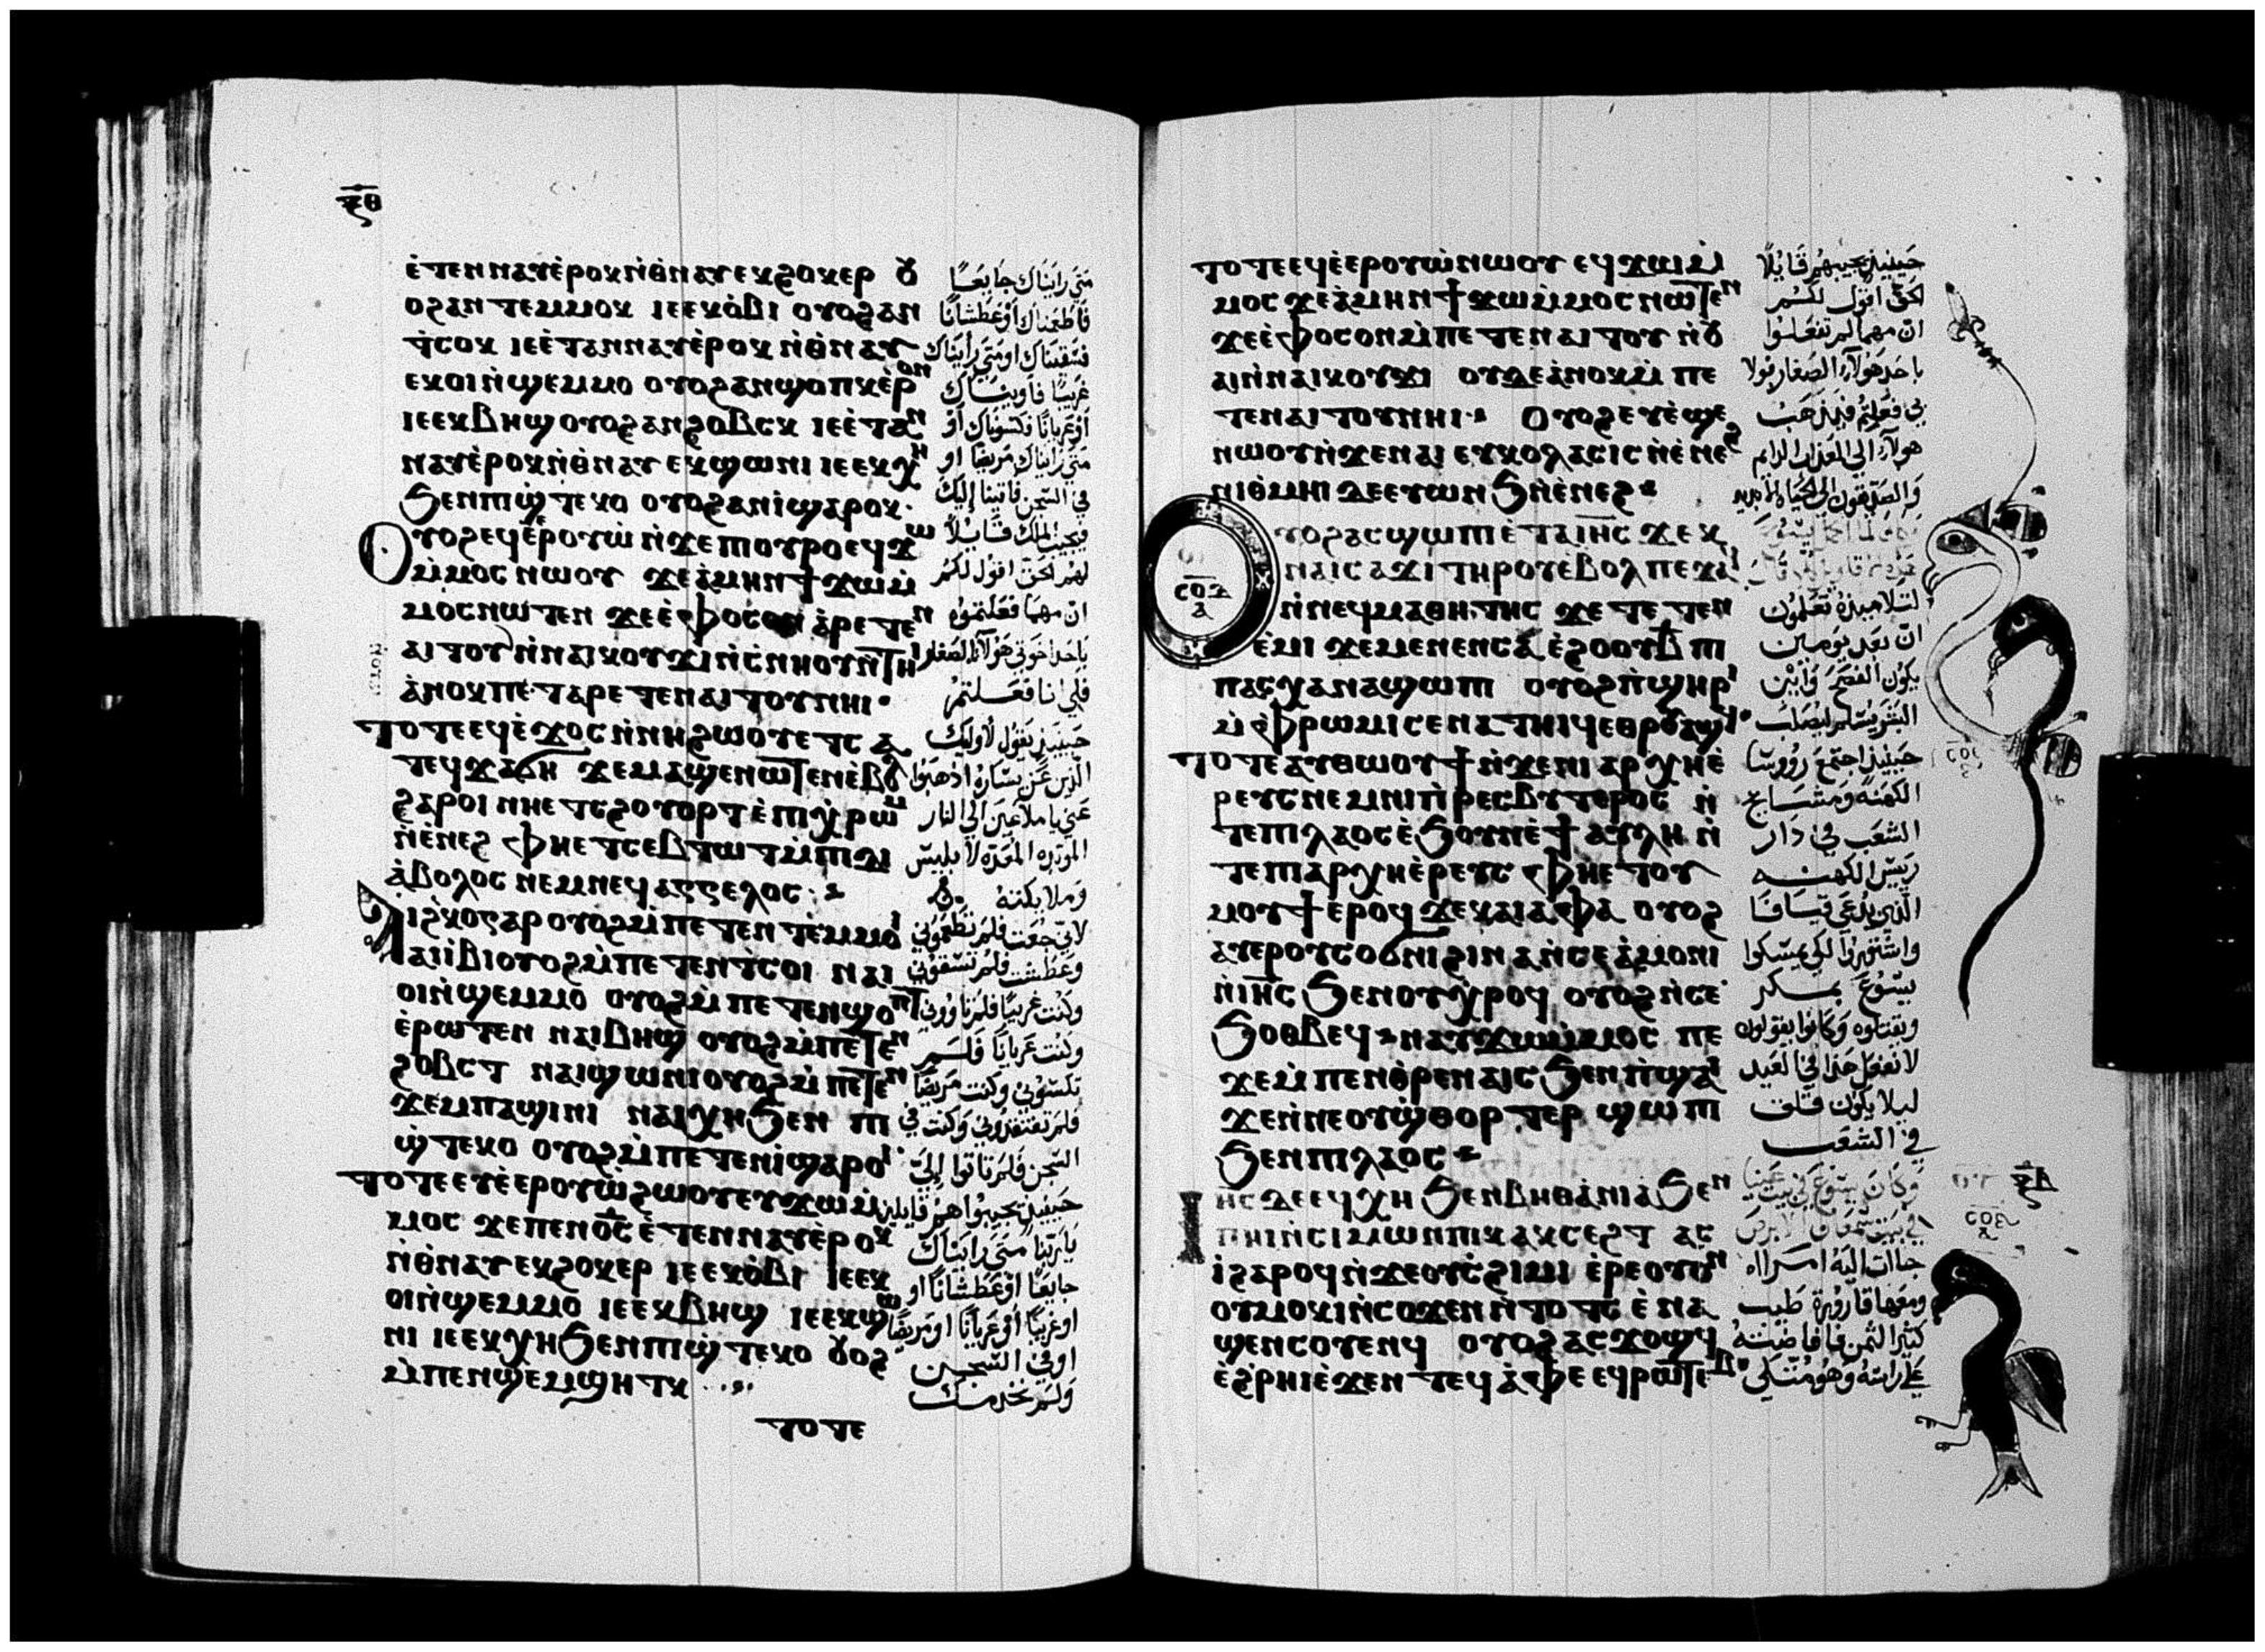 ⲝ̅ⲑ̅
ⲉ̀ⲧⲉⲛⲛⲁⲩⲉ̀ⲣⲟⲕⲛ̀ⲑⲛⲁⲩ ⲉⲕϩⲟⲕⲉⲣ ⲟⲩ
ⲟϩⲁⲛ ⲧⲉⲙⲙⲟⲕ ⲓⲉⲉⲕⲟ̀ⲃⲓ ⲟⲩⲟϩⲁⲛ
ⲧ̀ⲥⲟⲕ ⲓⲉⲉ̀ⲧⲁⲛⲛⲁⲩⲉ̀ⲣⲟⲕ ⲛ̀ⲑⲛⲁⲩ
ⲉⲕⲟⲓⲛ̀ϣⲉⲙⲙⲟ ⲟⲩⲟϩⲁⲛϣⲟⲡⲕⲉ̀ⲣⲟⲛ
ⲓⲉⲉⲕⲃⲏϣ ⲟⲩⲟϩⲁⲛϩⲟⲃⲥⲕ ⲓⲉⲉ̀ⲧⲁⲛ
ⲛⲁⲩⲉ̀ⲣⲟⲕⲛ̀ⲑⲛⲁⲩ ⲉⲕϣⲱⲛⲓ ⲓⲉⲉⲕⲭⲏ
ϧⲉⲛⲡⲓϣ̀ⲧⲉⲕⲟ ⲟⲩⲟϩⲁⲛⲓ̀ϣⲁⲣⲟⲕ·
ⲟⲩⲟϩⲉϥⲉ̀ⲣⲟⲩⲱ̀ ⲛ̀ϫⲉⲡⲓⲟⲩⲣⲟⲉϥϫⲱ
ⲙ̀ⲙⲟⲥ ⲛⲱⲟⲩ ϫⲉⲁ̀ⲙⲏⲛϯϫⲱⲙ̀
ⲙⲟ̀ⲥⲛⲱⲧⲉⲛ ϫⲉⲉ̀ⲫⲟⲥⲟⲛ ⲁ̀ⲣⲉⲧⲉⲛ
ⲁⲓⲧⲟⲩ ⲛ̀ⲛⲁⲓⲕⲟⲩϫⲓⲛ̀ⲥ̀ⲛⲏⲟⲩⲛ̀ⲧⲏⲓ
ⲁ̀ⲛⲟⲕⲡⲉⲧⲁⲣⲉⲧⲉⲛⲁⲓⲧⲟⲩⲛⲏⲓ·
ⲧⲟⲧⲉⲉϥⲉ̀ϫⲟⲥ ⲛ̀ⲛⲏϩⲱⲟⲩⲉⲧⲥⲁ
ⲧⲉϥϫⲁϭⲏ ϫⲉⲙⲁϣⲉⲛⲱⲧⲉⲛⲉ̀ⲃⲟⲗ
ϩⲁⲣⲟⲓ ⲛⲏⲉⲧⲥϩⲟⲩⲟⲣⲧ ⲉ̀ⲡⲓⲭ̀ⲣⲱⲙ
ⲛ̀ⲉ̀ⲛⲉϩ ⲫⲏⲉⲧⲥⲉⲃⲧⲱⲧⲙ̀ⲡⲓⲇⲓ
ⲁ̀ⲃⲟⲗⲟⲥ ⲛⲉⲙⲛⲉϥⲁⲅⲅⲉⲗⲟⲥ:
ⲁⲓϩⲕⲟⲅⲁⲣ ⲟⲩⲟϩⲙ̀ⲡⲉⲧⲉⲛ ⲧⲉⲙⲙⲟⲓ
ⲁⲓⲓ̀ⲃⲓⲟⲩⲟϩⲙ̀ⲡⲉⲧⲉⲛⲧ̀ⲥⲟⲓ ⲛⲁⲓ
ⲟⲓⲛ̀ϣⲉⲙⲙⲟ ⲟⲩⲟϩⲙ̀ⲡⲉⲧⲉⲛϣⲟⲡⲧ
ⲉ̀ⲣⲱⲧⲉⲛ ⲛⲁⲓⲃⲏϣ ⲟⲩⲟϩⲙ̀ⲡⲉⲧⲉⲛ
ϩⲟⲃⲥⲧ ⲛⲁⲓϣⲱⲛⲓⲟⲩⲟϩⲙ̀ⲡⲉⲧⲉⲛ
ϫⲉⲙⲡⲁϣⲓⲛⲓ ⲛⲁⲓⲭⲏϧⲉⲛ ⲡⲓ
ϣ̀ⲧⲉⲕⲟ ⲟⲩⲟϩⲙ̀ⲡⲉⲧⲉⲛⲓ̀ϣⲁⲣⲟⲓ·
ⲧⲟⲧⲉⲉⲩⲉ̀ⲉⲣⲟⲩⲱ̀ϩⲱⲟⲩⲉⲩϫⲱⲙ̀
ⲙⲟⲥ ϫⲉⲡⲉⲛⲟ̅ⲥ̅ ⲉ̀ⲧⲉⲛⲛⲁⲩⲉ̀ⲣⲟⲕ
ⲛ̀ⲑⲛⲁⲩ ⲉⲕϩⲟⲕⲉⲣ ⲓⲉⲉⲕⲟ̀ⲃⲓ ⲓⲉⲉⲕ
ⲟⲓⲛ̀ϣⲉⲙⲙⲟ ⲓⲉⲉⲕⲃⲏϣ ⲓⲉⲉⲕϣⲱ
ⲛⲓ ⲓⲉⲉⲕⲭⲏϧⲉⲛⲡⲓϣ̀ⲧⲉⲕⲟ ⲟⲩⲟϩ
ⲙ̀ⲡⲉⲛϣⲉⲙϣⲏⲧⲕ
ⲧⲟⲧⲉ
متى رايناك جايعًا
فاطعمناك او عطشانًا
فسقيناك او متى رايناك
غريبًا فاويناك
او عريانًا فكسوناك او
متى رايناك مريضًا او
في السجن فاتينا إليك
فيجيب الملك قايلاً
لهم الحق اقول لكم
ان مهما فعلتموه
باحد اخوتي هولآء الصغار
فلي انا فعلتم
حينيذ يقول لأوليك
الذين عن يساره اذهبوا
عني يا ملاعين الي النار
الموبده المعده لابليس
وملايكته
لاني جعت فلم تطعموني
وعطشت فلم تسقوني
وكنت غريبًا فلم تاووني
وكنت عريانًا فلم
تكسوني وكنت مريضًا
فلم تفتقدوني وكنت في
السجن فلم تاتوا إليّ
حينيذ يجيبوا هم قايلين
يا ربنا متى رايناك
جايعًا او عطشانًا او
او غريبًا او عريانًا او مريضًا
او في السجن
ولم نخدمك
ⲧⲟⲧⲉⲉϥⲉ̀ⲉⲣⲟⲩⲱ̀ⲛⲱⲟⲩ ⲉϥϫⲱⲙ̀
ⲙⲟⲥ ϫⲉⲁ̀ⲙⲏⲛϯϫⲱⲙ̀ⲙⲟⲥ ⲛⲱⲧⲉⲛ
ϫⲉⲉ̀ⲫⲟⲥⲟⲛⲙ̀ⲡⲉⲧⲉⲛⲁⲓⲧⲟⲩ ⲛ̀ⲟⲩ
ⲁⲓⲛ̀ⲛⲁⲓⲕⲟⲩϫⲓ ⲟⲩⲇⲉⲁ̀ⲛⲟⲕⲙ̀ⲡⲉ
ⲧⲉⲛⲁⲓⲧⲟⲩⲛⲏⲓ· ⲟⲩⲟϩⲉⲩⲉ̀ϣⲉ
ⲛⲱⲟⲩⲛ̀ϫⲉⲛⲁⲓ ⲉⲩⲕⲟⲗⲁⲥⲓⲥ ⲛ̀ⲉ̀ⲛⲉϩ
ⲛⲓⲑⲙⲏⲓ ⲇⲉⲉⲩⲱⲛϧⲛ̀ⲉ̀ⲛⲉϩ·
ⲟⲩⲟϩⲁⲥϣⲱⲡⲓ ⲉ̀ⲧⲁⲓⲏ̅ⲥ̅ ϫⲉⲕ
ⲛⲁⲓⲥⲁϫⲓ ⲧⲏⲣⲟⲩⲉ̀ⲃⲟⲗ ⲡⲉϫⲁϥ
ⲥⲟⲇ
ⲁ
ⲛ̀ⲛⲉϥⲙⲁⲑⲏⲧⲏⲥ ϫⲉ ⲧⲉⲧⲉⲛ
ⲉ̀ⲙⲓ ϫⲉⲙⲉⲛⲉⲛⲥⲁ ⲉ̀ϩⲟⲟⲩⲃ̅ ⲡⲓ
ⲡⲁⲥⲭⲁⲛⲁϣⲱⲡⲓ ⲟⲩⲟϩⲡ̀ϣⲏⲣⲓ
ⲙ̀ⲫⲣⲱⲙⲓⲥⲉⲛⲁⲧⲏⲓϥⲉⲑⲣⲟⲩⲁϣϥ·
ⲧⲟⲧⲉⲁⲩⲑⲱⲟⲩϯⲛ̀ϫⲉⲛⲓⲁⲣⲭⲏⲉ̀
ⲣⲉⲩⲥⲛⲉⲙⲛⲓⲡ̀ⲣⲉⲥⲃⲩⲧⲉⲣⲟⲥ ⲛ̀
ⲧⲉⲡⲓⲗⲁⲟⲥⲉ̀ϧⲟⲩⲛⲉ̀ϯⲁⲩⲗⲏ ⲛ̀
ⲧⲉⲡⲓⲁⲣⲭⲏⲉ̀ⲣⲉⲩⲥ ⲫⲏⲉⲧⲟⲩ
ⲙⲟⲩϯⲉ̀ⲣⲟϥ ϫⲉⲕⲁⲓⲁⲫⲁ ⲟⲩⲟϩ
ⲁⲩⲉⲣⲟⲩⲥⲟϭⲛⲓ ϩⲓⲛⲁⲛ̀ⲥⲉⲁ̀ⲙⲟⲛⲓ
ⲛ̀ⲓⲏ̅ⲥ̅ ϧⲉⲛⲟⲩⲭ̀ⲣⲟϥ ⲟⲩⲟϩⲛ̀ⲥⲉ
ϧⲟⲑⲃⲉϥ ⲛⲁⲩϫⲱⲙ̀ⲙⲟⲥ ⲡⲉ
ϫⲉⲙ̀ⲡⲉⲛⲑ̀ⲣⲉⲛⲁⲓⲥϧⲉⲛⲡ̀ϣⲁⲓ
ϫⲉⲛ̀ⲛⲉⲟⲩϣ̀ⲑⲟⲣⲧⲉⲣ ϣⲱⲡⲓ
ϧⲉⲛⲡⲓⲗⲁⲟⲥ
ⲓⲏⲥ ⲇⲉⲉϥⲭⲏ ϧⲉⲛⲃⲏⲑⲁ̀ⲛⲓⲁϧⲉⲛ
ⲡⲏⲓⲛ̀ⲥⲓⲙⲱⲛⲡⲓⲕⲁⲕⲥⲉϩⲧ ⲁⲥ
ⲓ̀ϩⲁⲣⲟϥⲛ̀ϫⲉⲟⲩⲥ̀ϩⲓⲙⲓ ⲉ̀ⲣⲉⲟⲩⲟⲛ
ⲟⲩⲙⲟⲕⲓⲛ̀ⲥⲟϫⲉⲛ ⲛ̀ⲧⲟⲧⲥ ⲉ̀ⲛⲁ
ϣⲉⲛⲥⲟⲩⲉⲛϥ ⲟⲩⲟϩⲁⲥϫⲟϣϥ
ⲉ̀ϩⲣⲏⲓⲉ̀ϫⲉⲛ ⲧⲉϥⲁ̀ⲫⲉ ⲉϥⲣⲱⲧⲉⲃ·
حينيذ يجيبهم قايلًا
لحق اقول لكم
ان مهما لم تفعلوا
باحد هولآء الصغار فولا
بي فعلتم فيذهب
هولآء الي العذاب الدايم
والصديقون الى الحياه الابديه
لتلاميذه تعلمون
ان بعد يومين
يكون الفصح وابن
البشر يسلم ليصلب
حينيذ اجتمع رووسا
الكهنه ومشايخ
الشعب في دار
ريس الكهنه
الذي يدعى قيافا
واشتوروا لكي يمسكوا
يسوع بمكر
ويقتلوه وكانوا يقولون
لا نفعل هذا في العيد
ليلا يكون قلق
في الشعب
وكان يسوع في بيت عنيا
في بيت سمعان الابرص
جاات اليه امراه
ومعها قارورة طيب
كثير الثمن فافاضته
على راسه وهو متكي